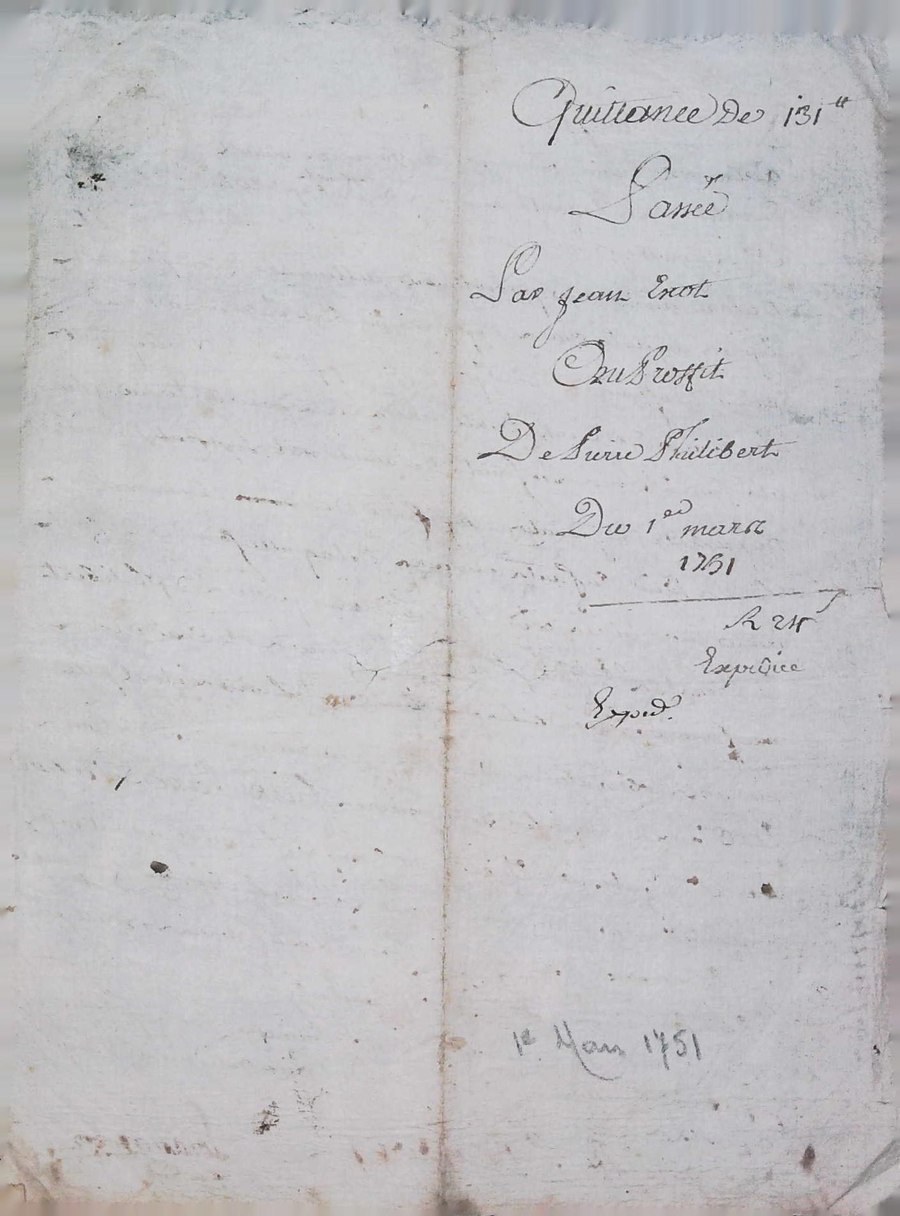 Quittance De 131^tt
Passée
Par Jean Exot
Au Proffit
De Pierre Philibert
Du 1^er mars
1751
R 24
Exped.
1er Mars 1751